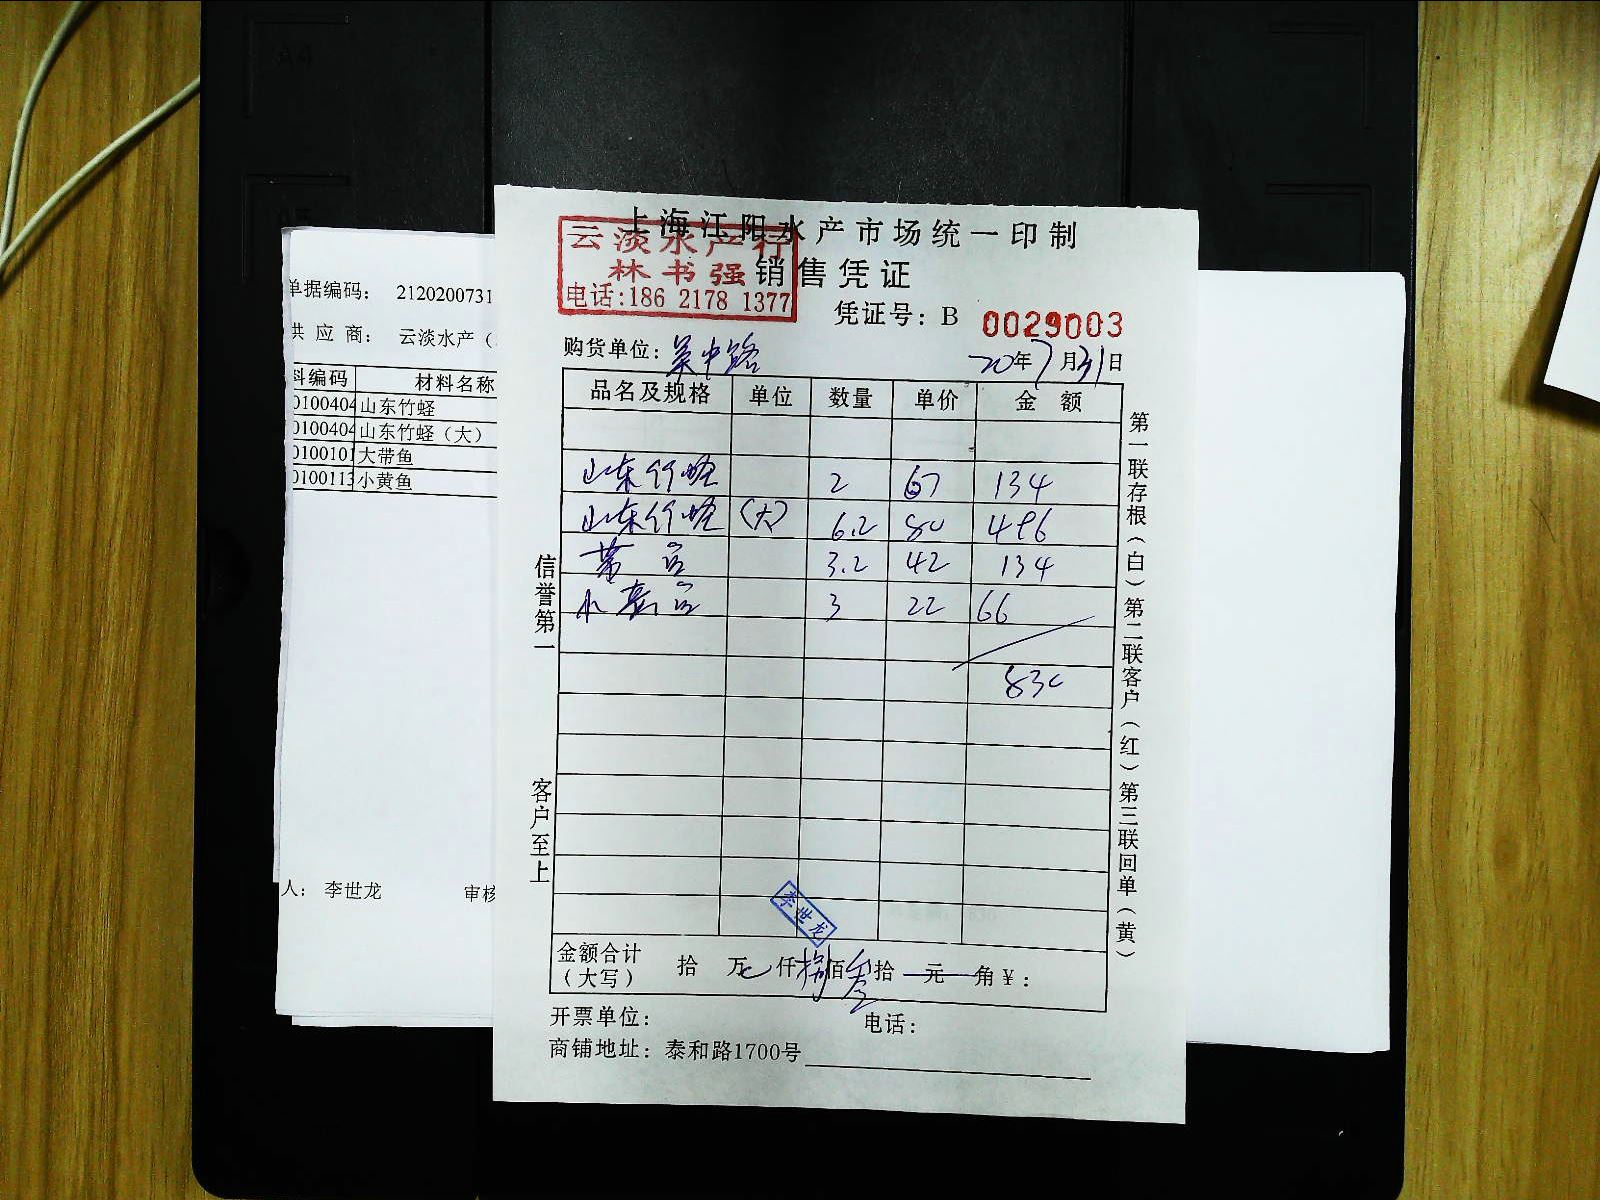 上海江阳水产市场统一印制
云淡水产行
林书强
电话:186 2178 1377
销售凭证
凭证号: B 0029003
购货单位: 吴中路 20年7月31日
品名及规格 单位 数量 单价 金 额
山东竹蛏 2 67 134
山东竹蛏 (大) 6.2 80 496
3.2 42 134
3 22 66
830
李世龙
金额合计(大写) 拾 万 仟 捌佰叁拾 元 角¥:
开票单位: 电话:
商铺地址: 泰和路1700号
信誉第一 客户至上
第一联存根(白)第二联客户(红)第三联回单(黄)
单据编码: 2120200731
供 应 商: 云淡水产(
料编码 材料名称
0100404 山东竹蛏
0100404 山东竹蛏(大)
0100101 大带鱼
0100113 小黄鱼
人: 李世龙 审核